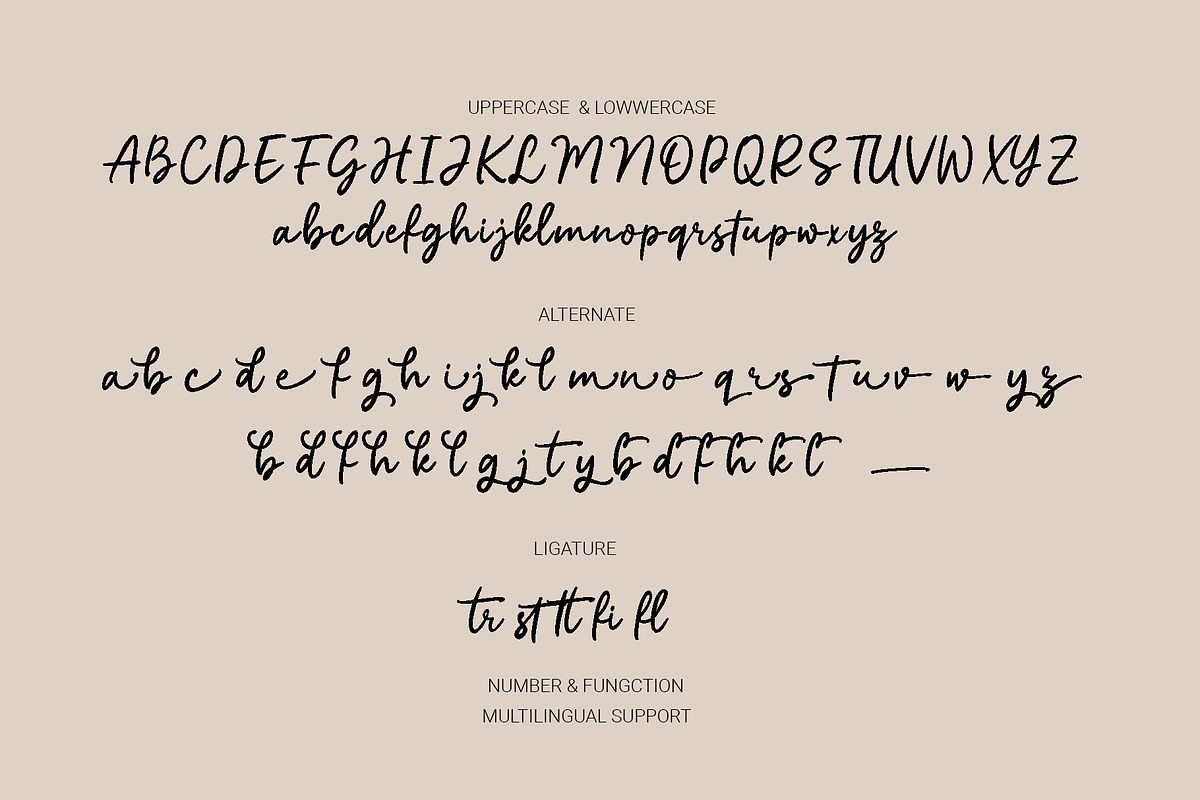 UPPERCASE & LOWWERCASE
ABCDEFGHIJKLMNOPQRSTUVWXYZ
abcdefghijklmnopqrstupwxyz
ALTERNATE
a b c d e f g h i j k l m n o q r s t u v w y z
b d f h k l g j t y b d f h k l _
LIGATURE
tr st tt fi fl
NUMBER & FUNGCTION
MULTILINGUAL SUPPORT